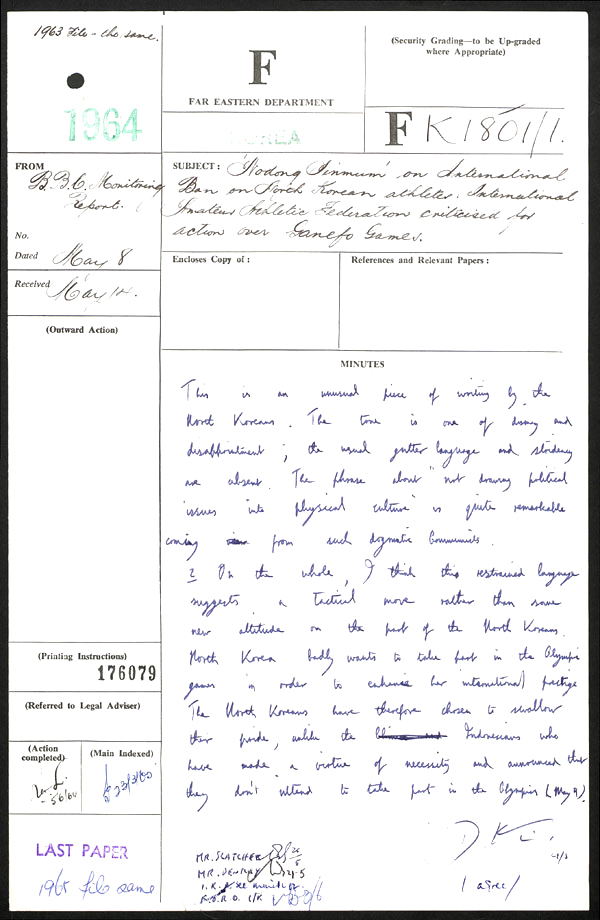 1963 File - the same.
1964
F
FAR EASTERN DEPARTMENT
KOREA
(Security Grading—to be Up-graded
where Appropriate)
F K 1801/1.
FROM
B.B.C. Monitoring
Report.
No.
Dated May 8
Received May 14.
SUBJECT: 'Nodong Sinmum' on International
Ban on North Korean athletes: International
Amateur Athletic Federation criticised for
action over Ganefo Games.
Encloses Copy of:
References and Relevant Papers:
(Outward Action)
MINUTES
This is an unusual piece of writing by the
North Koreans. The tone is one of dismay and
disappointment; the usual gutter language and stridency
are absent. The phrase about "not drawing political
issues into physical culture" is quite remarkable
coming from such dogmatic Communists.
2 On the whole, I think this restrained language
suggests a tactical move rather than some
new attitude on the part of the North Koreans.
North Korea badly wants to take part in the Olympic
games in order to enhance her international prestige
The North Koreans have therefore chosen to swallow
their pride, unlike the Indonesians who
have made a virtue of necessity and announced that
they don't intend to take part in the Olympics (May 9).
(Printing Instructions)
176079
(Referred to Legal Adviser)
(Action
completed)
5/6/64
(Main Indexed)
23/3/65
LAST PAPER
1965 file same
MR. SLATCHER
MR. DENRAY
I agree/